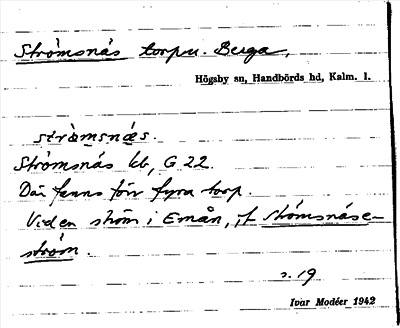 Strömsnäs torpu. Berga,
Högsby sn, Handbörds hd, Kalm. l.
strömsnäs.
Strömsnäs kb, G 22.
Där fanns förr fyra torp.
Vid en ström i Emån, jf Strömsnäse-
ström.
s. 19
Ivar Modéer 1942